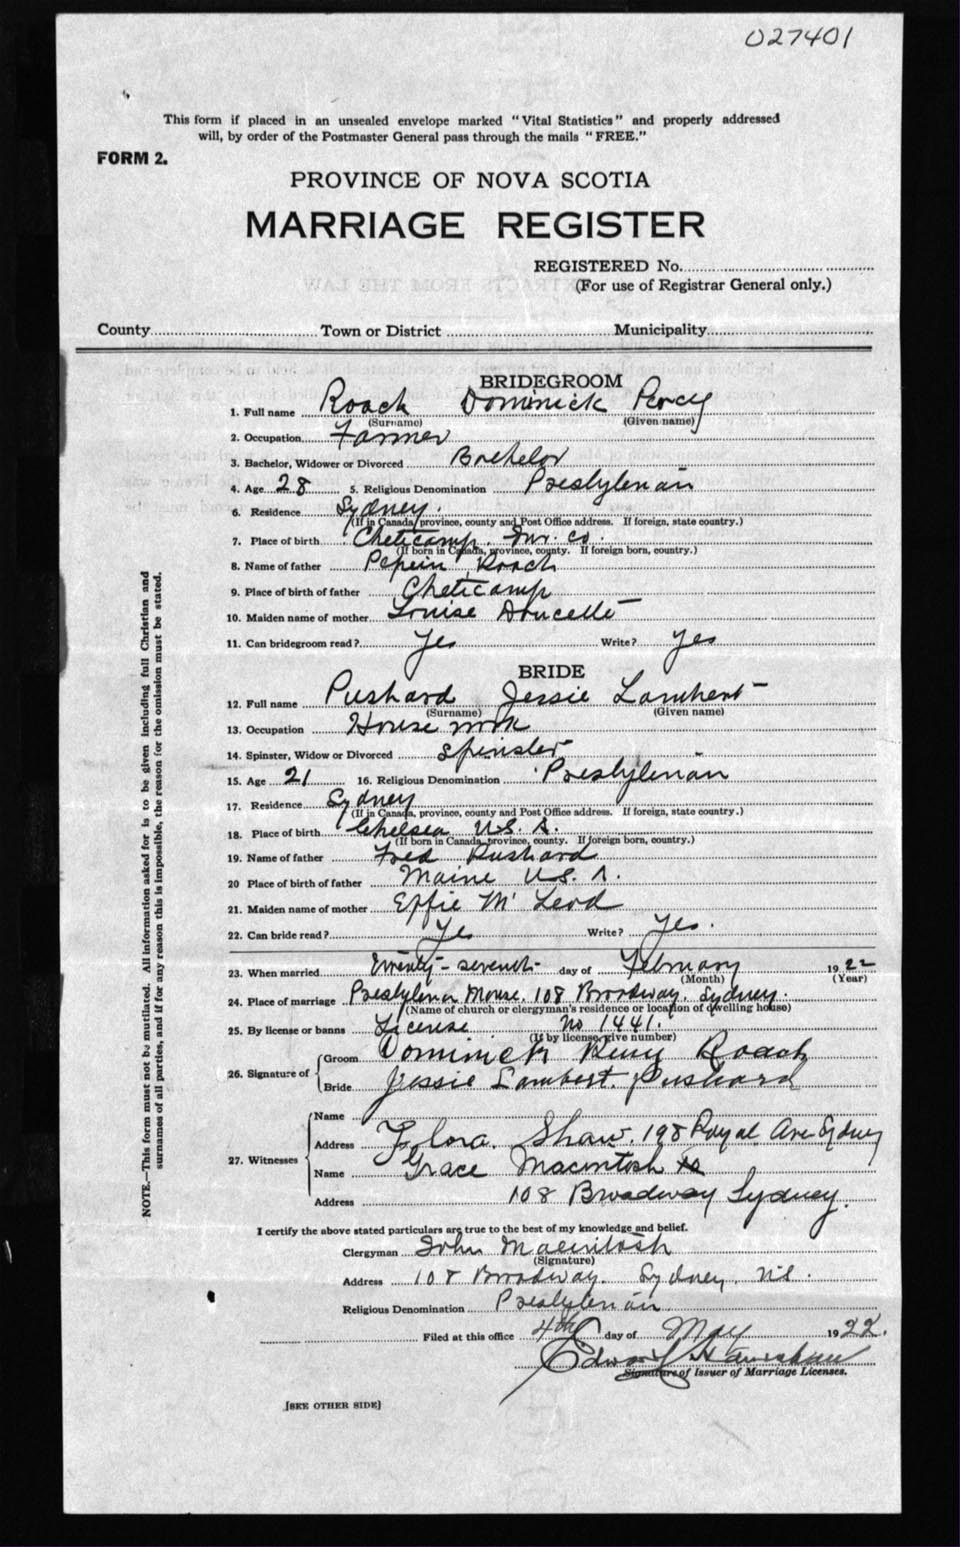 027401
This form if placed in an unsealed envelope marked "Vital Statistics" and properly addressed
will, by order of the Postmaster General pass through the mails "FREE."
FORM 2.
PROVINCE OF NOVA SCOTIA
MARRIAGE REGISTER
REGISTERED No.
(For use of Registrar General only.)
County Town or District Municipality
BRIDEGROOM
1. Full name Roach Dominick Percy
(Surname) (Given name)
2. Occupation Farmer
3. Bachelor, Widower or Divorced Bachelor
4. Age 28 5. Religious Denomination Presbyterian
6. Residence Sydney.
(If in Canada, province, county and Post Office address. If foreign, state country.)
7. Place of birth Cheticamp. Inv. Co.
(If born in Canada, province, county. If foreign born, country.)
8. Name of father Roach
9. Place of birth of father Cheticamp
10. Maiden name of mother Louise Doucette
11. Can bridegroom read? Yes Write? Yes
BRIDE
12. Full name Pushard Jessie Lambert
(Surname) (Given name)
13. Occupation House work
14. Spinster, Widow or Divorced Spinster
15. Age 21 16. Religious Denomination Presbyterian
17. Residence Sydney
(If in Canada, province, county and Post Office address. If foreign, state country.)
18. Place of birth Chelsea U.S.A.
(If born in Canada, province, county. If foreign born, country.)
19. Name of father Fred Pushard
20 Place of birth of father Maine U.S.A.
21. Maiden name of mother Effie McLeod
22. Can bride read? Yes Write? Yes.
23. When married Twenty-seventh day of February 1922
(Month) (Year)
24. Place of marriage Presbyterian Manse. 108 Broadway. Sydney.
(Name of church or clergyman's residence or location of dwelling house)
25. By license or banns License No 1441.
(If by license, give number)
26. Signature of Groom Dominick Percy Roach
Bride Jessie Lambert. Pushard
27. Witnesses
Name
Address Flora. Shaw. 198 Royal Ave Sydney
Name Grace Macintosh
Address 108 Broadway Sydney.
I certify the above stated particulars are true to the best of my knowledge and belief.
Clergyman John Macintosh
(Signature)
Address 108 Broadway. Sydney. N.S.
Religious Denomination Presbyterian
Filed at this office 4th day of May 1922.
Signature of Issuer of Marriage Licenses.
[SEE OTHER SIDE]
NOTE.—This form must not be mutilated. All information asked for is to be given including full Christian and
surnames of all parties, and if for any reason this is impossible, the reason for the omission must be stated.